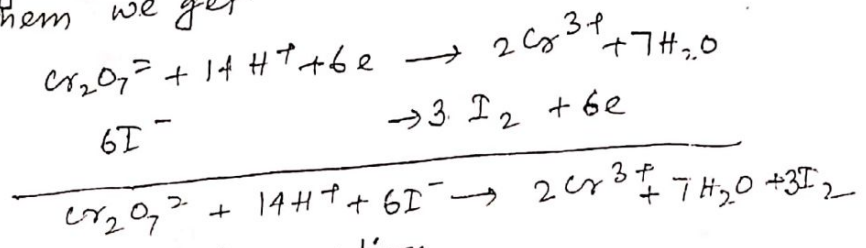 them we get
Cr₂O₇⁼ + 14 H⁺ + 6e → 2Cr³⁺ + 7H₂O
6I⁻ → 3 I₂ + 6e
Cr₂O₇²⁻ + 14H⁺ + 6I⁻ → 2Cr³⁺ + 7H₂O + 3I₂